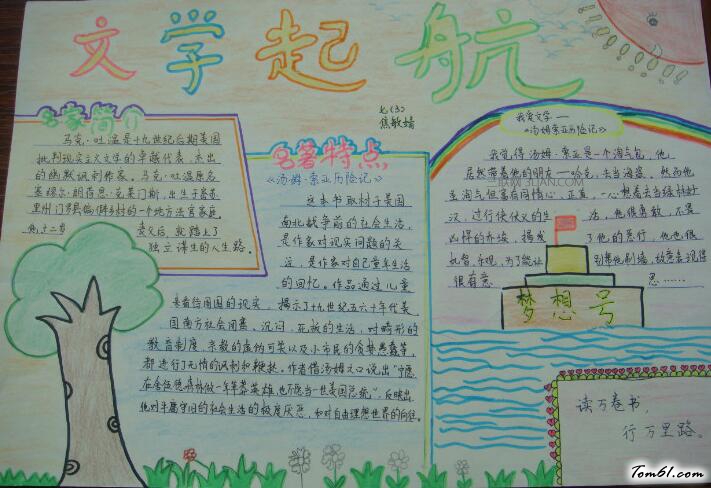 文学起航
七(3)
焦敏婧
名家简介
马克·吐温是十九世纪后期美国
批判现实主义文学的卓越代表，杰出
的幽默讽刺作家。马克·吐温原名
塞缪尔·朗荷恩·克莱门斯，出生于密苏
里州门罗县佛罗里达村的一个地方法官家庭
他十二岁丧父后，就踏上了
独立谋生的人生路。
名著特点
《汤姆·索亚历险记》
这本书取材于美国
南北战争前的社会生活，
是作家对现实问题的关
注，是作家对自己童年生活
的回忆，作品通过儿童
来看待周围的现实，揭示了十九世纪五六十年代美
国南方社会闭塞，沉闷，死板的生活，对畸形的
教育制度，宗教的虚伪可笑以及小市民的贪婪愚蠢等，
都进行了无情的讽刺和鞭挞，作者借汤姆之口说出"宁愿
在舍伍德森林做一年绿林英雄，也不愿当一世美国总统"，反映出
他对平庸守旧的社会生活的极度厌恶，和对自由理想世界的向往。
我爱文学——
《汤姆索亚历险记》
我觉得汤姆·索亚是一个淘气包，他
居然带着他的朋友——哈克，去当海盗，然而他
虽淘气但富有同情心，正直，一心想着去当绿林好
汉，过行侠仗义的生活，他很勇敢，不畏
凶悍的乔埃，揭发了他的恶行，他也很
机智、乐观，为了能让别帮他刷墙，故意表现得
很有意思……
梦想号
读万卷书，
行万里路。
Tom61.com